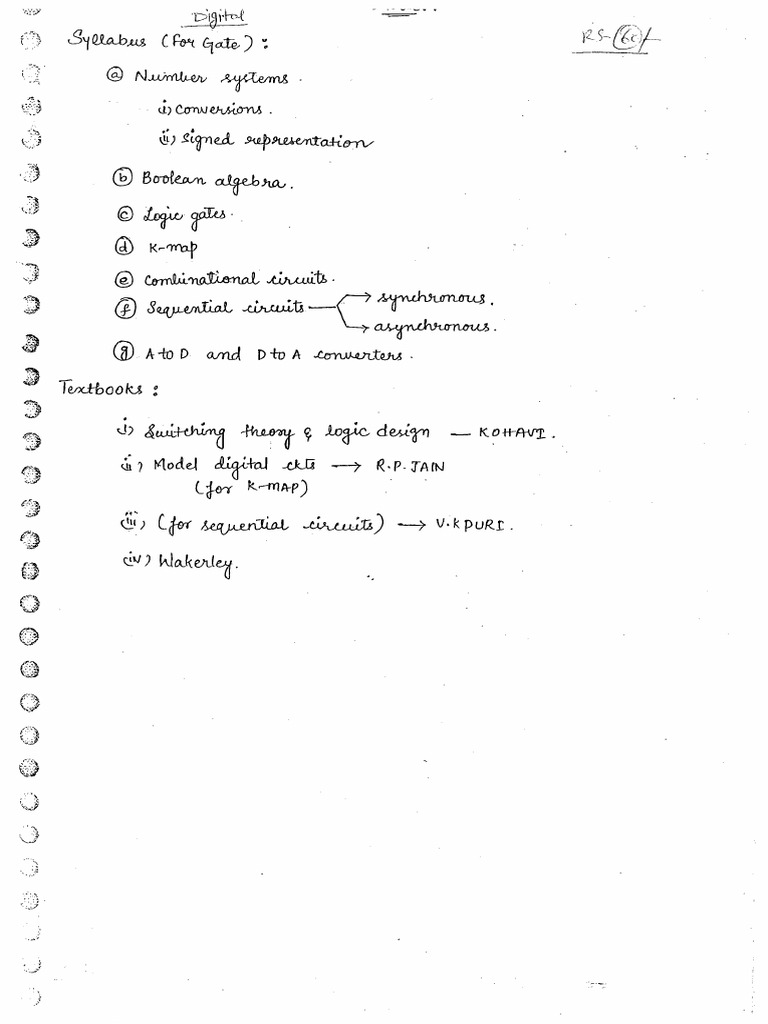 Digital
Syllabus (for Gate) :
RS-60/-
(a) Number systems.
i) Conversions.
ii) Signed representation
(b) Boolean algebra.
(c) Logic gates.
(d) K-map
(e) Combinational circuits.
(f) Sequential circuits → synchronous.
→ asynchronous.
(g) A to D and D to A converters.
Textbooks :
i) Switching theory & logic design — KOHAVI.
ii) Model digital ckts → R.P.JAIN
(for K-MAP)
iii) (for sequential circuits) → V.K PURI.
iv) Wakerley.